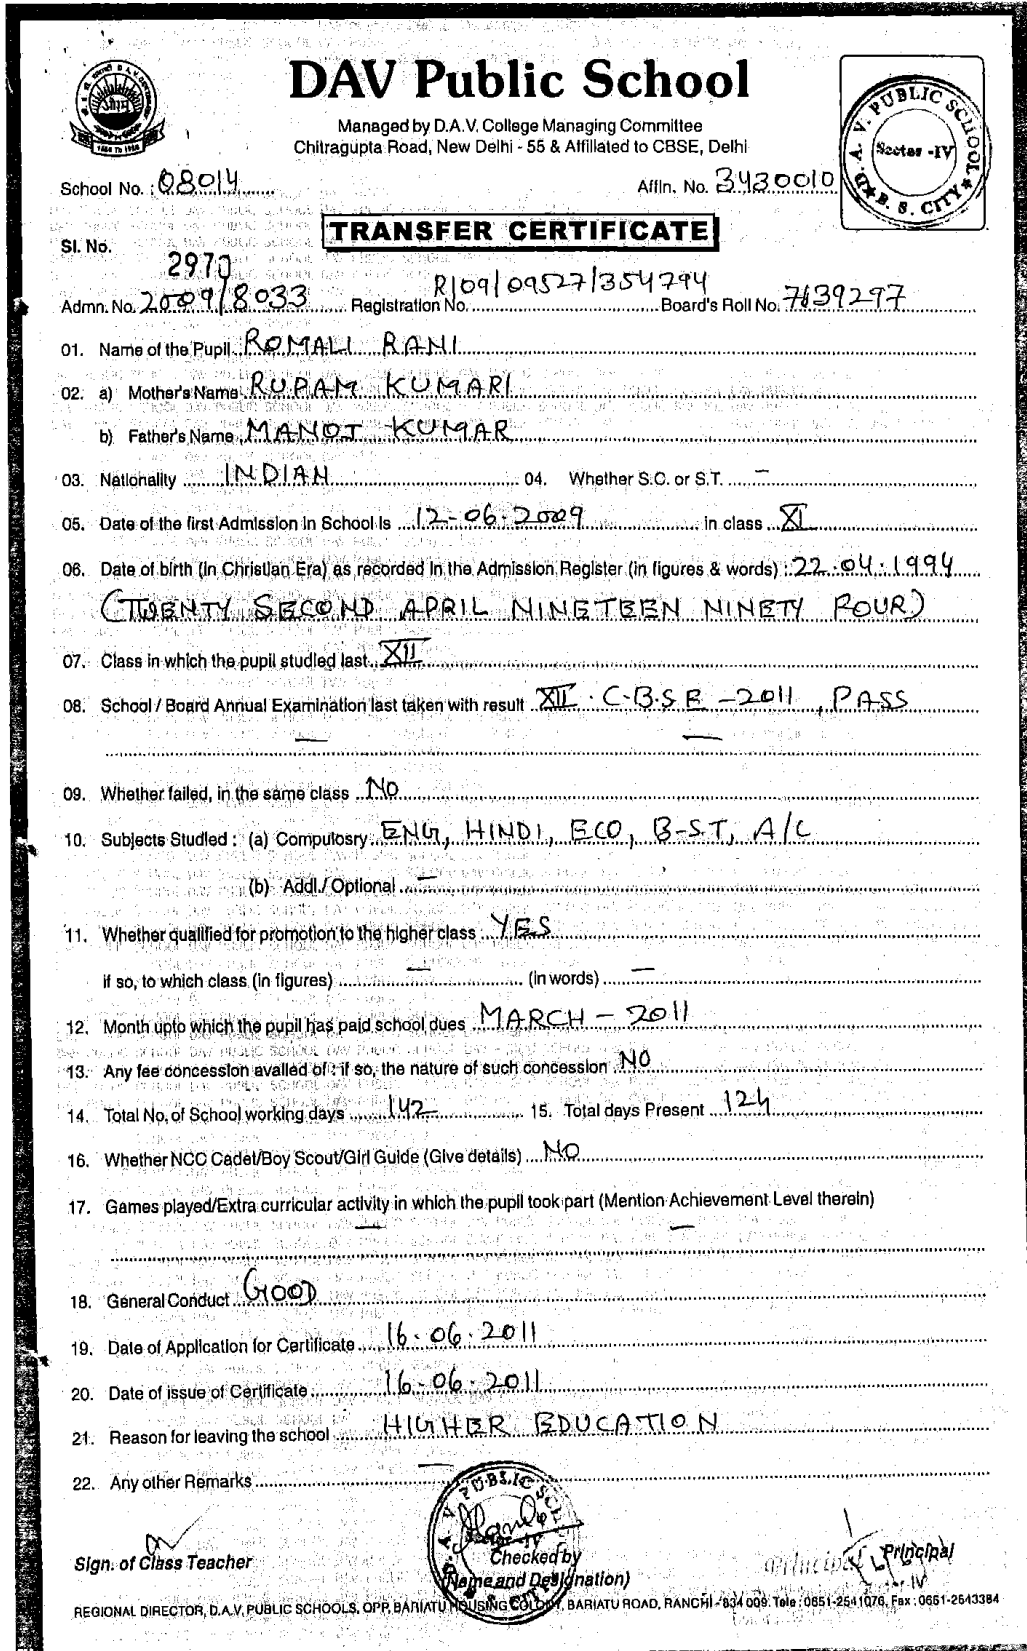 DAV Public School
Managed by D.A.V. College Managing Committee
Chitragupta Road, New Delhi - 55 & Affillated to CBSE, Delhi
D. A. V. PUBLIC SCHOOL
Sector -IV
B. S. CITY
School No. : 08014
Affln. No. 3430010
TRANSFER CERTIFICATE
Sl. No. 2970
Admn. No. 2009/8033 Registration No. R/09/09527/354794 Board's Roll No. 7639297
01. Name of the Pupil ROMALI RANI
02. a) Mother's Name RUPAM KUMARI
b) Father's Name MANOJ KUMAR
03. Nationality INDIAN 04. Whether S.C. or S.T. —
05. Date of the first Admission in School is 12-06-2009 in class XI
06. Date of birth (in Christian Era) as recorded in the Admission Register (in figures & words) : 22.04.1994
(TWENTY SECOND APRIL NINETEEN NINETY FOUR)
07. Class in which the pupil studied last XII
08. School / Board Annual Examination last taken with result XII C.B.S.E - 2011, PASS
— —
09. Whether failed, in the same class NO
10. Subjects Studied : (a) Compulosry ENG, HINDI, ECO, B-S.T, A/C
(b) Addl./ Optional —
11. Whether qualified for promotion to the higher class YES
if so, to which class (in figures) — (in words) —
12. Month upto which the pupil has paid school dues MARCH - 2011
13. Any fee concession availed of : if so, the nature of such concession NO
14. Total No. of School working days 142 15. Total days Present 124
16. Whether NCC Cadet/Boy Scout/Girl Guide (Give details) NO
17. Games played/Extra curricular activity in which the pupil took part (Mention Achievement Level therein)
— —
18. General Conduct GOOD
19. Date of Application for Certificate 16.06.2011
20. Date of issue of Certificate 16-06-2011
21. Reason for leaving the school HIGHER EDUCATION
22. Any other Remarks —
Sign. of Class Teacher
Checked by
(Name and Designation)
Principal
REGIONAL DIRECTOR, D.A.V. PUBLIC SCHOOLS, OPP. BARIATU HOUSING COLONY, BARIATU ROAD, RANCHI - 834 009. Tele : 0651-2541076, Fax : 0651-2543384